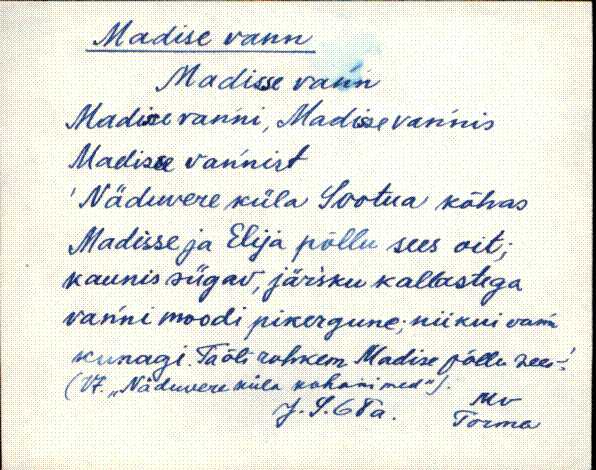 Madise vann
Madisse vańn
Madisse vańni, Madisse vańnis
Madisse vańnist
'Näduvere küla Sootua kõhas
Madisse ja Elija põllu sees oit;
kaunis sügav, järsku kallastega
vańni moodi pikergune; niikui vańn
kunagi. Ta õli rohkem Madise põllu sees'.
(Vt. „Näduvere küla kohanimed").
MV
J. S. 68a.
Torma